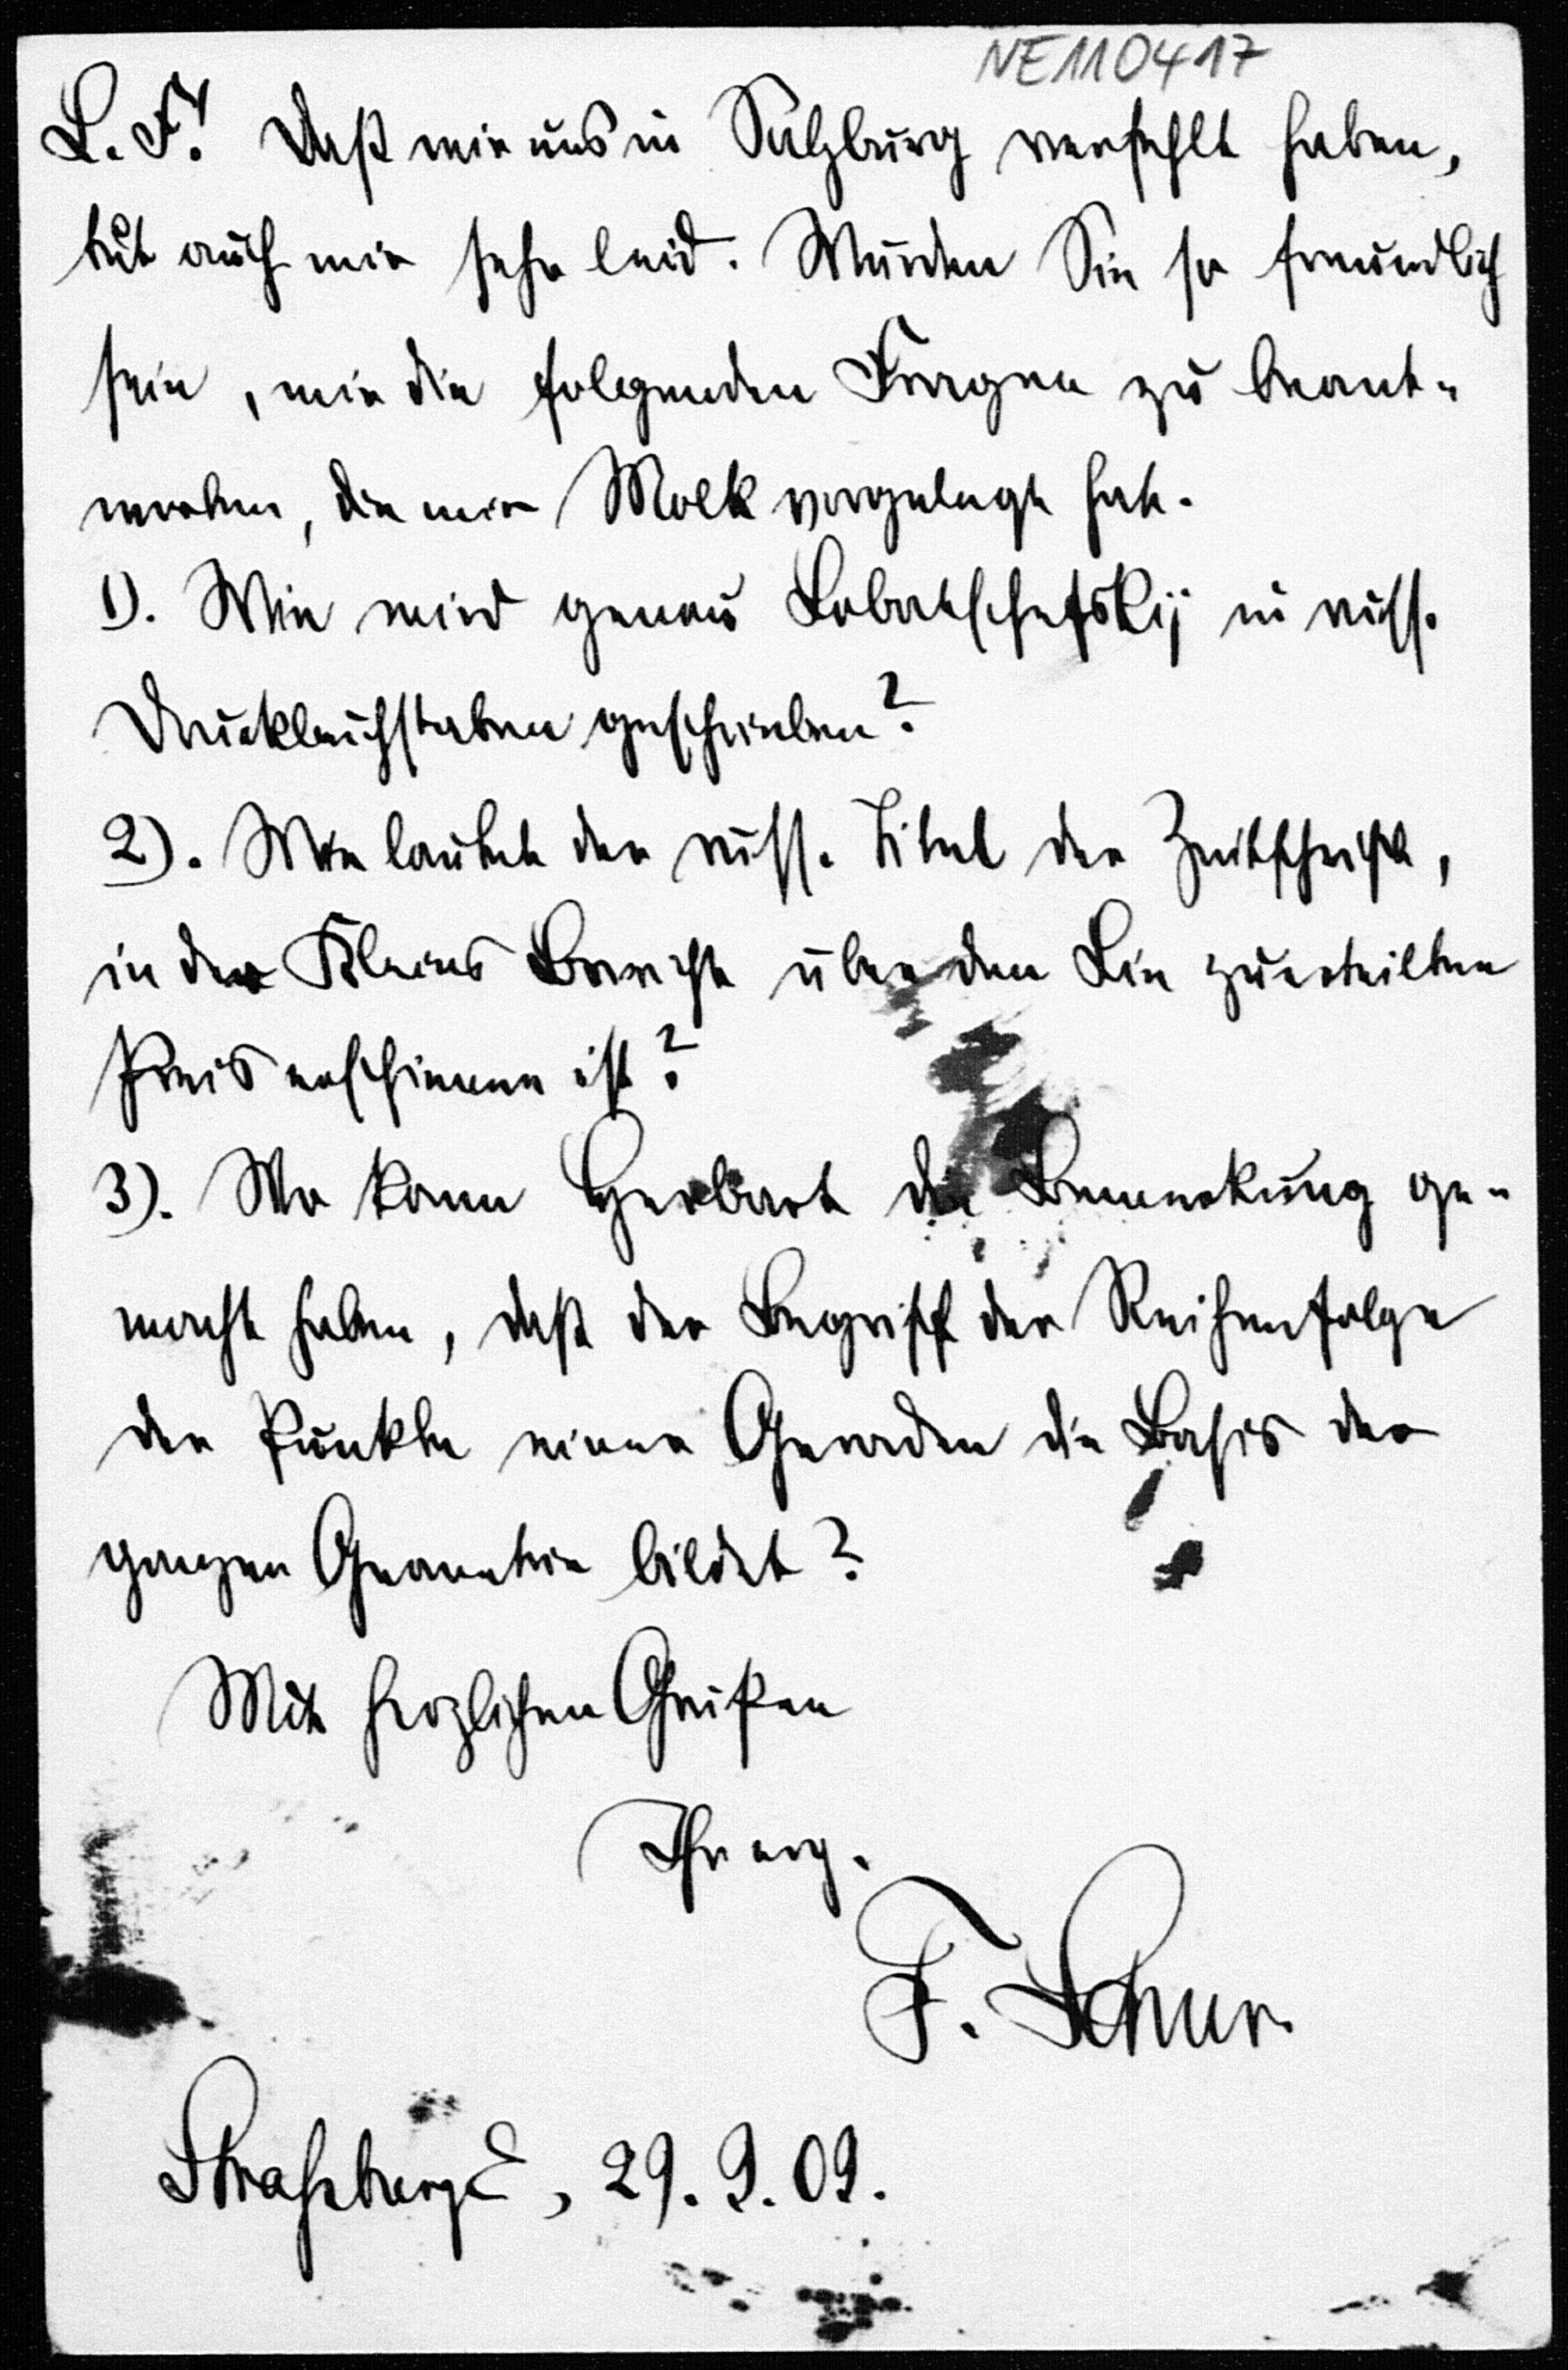 NE110417
L. F! Daß wir uns in Salzburg verfehlt haben,
tut auch mir sehr leid. Würden Sie so freundlich
sein, mir die folgenden Fragen zu beant-
worten, die mir Molk vorgelegt hat.
1). Wie wird genau Lobatschefskij in russ.
Druckbuchstaben geschrieben?
2). Wie lautet der russ. Titel der Zeitschrift,
in der Kleins Bericht über den Lie zuerteilten
Preis erschienen ist?
3). Wo kann Herbart die Bemerkung ge-
macht haben, daß der Begriff der Reihenfolge
der Punkte einer Geraden die Basis der
ganzen Geometrie bildet?
Mit herzlichen Grüßen
Ihr erg.
F. Schur.
Straßburg E, 29. 9. 09.